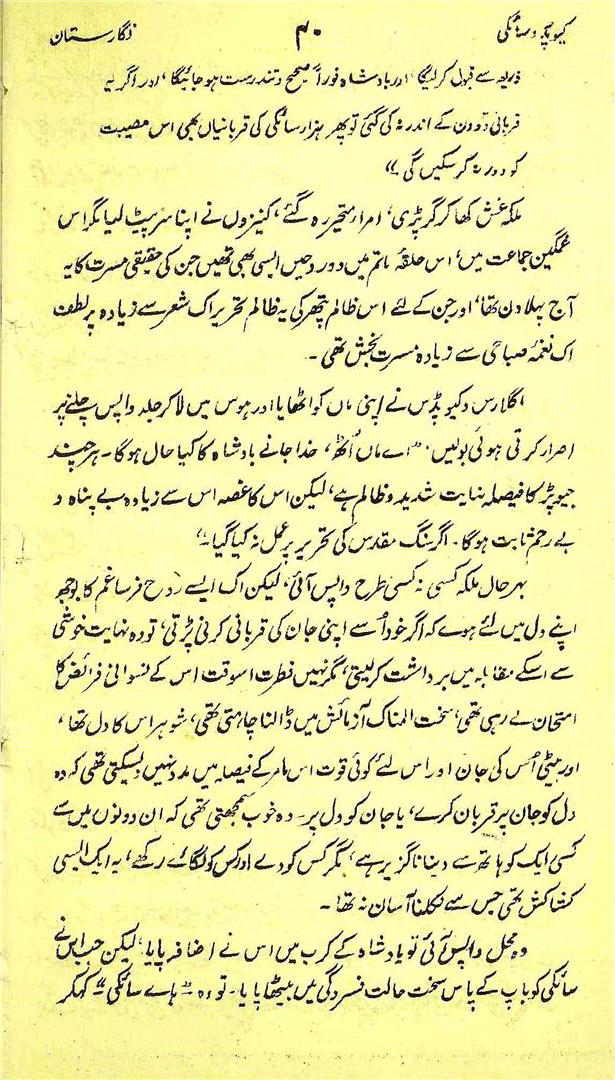 کیوپڈ و سائکی ۴۰ نگارستان
ذریعہ سے قبول کرلیگا، اور بادشاہ فوراً صحیح و تندرست ہوجائیگا، اور اگر یہ
قربانی دو دن کے اندر نہ کی گئی تو پھر ہزار سائکی کی قربانیاں بھی اس مصیبت
کو دور نہ کرسکیں گی"
ملکہ غش کھا کر گر پڑی، امرار متحیر رہ گئے، کنیزوں نے اپنا سر پیٹ لیا مگر اس
غمگین جماعت میں، اس حلقۂ ماتم میں دو روحیں ایسی بھی تھیں جن کی حقیقی مسرت کا یہ
آج پہلا دن تھا، اور جن کے لئے اس ظالم پتھر کی یہ ظالم تحریر اک شعر سے زیادہ پر لطف
اک نغمۂ صباحی سے زیادہ مسرت بخش تھی۔
اگلارس و کیوپڈس نے اپنی ماں کو اٹھایا اور ہوس میں لاکر جلد واپس چلنے پر
اصرار کرتی ہوئی بولیں۔ "اے ماں اُٹھ، خدا جانے بادشاہ کا کیا حال ہوگا۔ ہر چند
جیوپٹر کا فیصلہ نہایت شدید و ظالم ہے، لیکن اس کا غصہ اس سے زیادہ بے پناہ و
بے رحم ثابت ہوگا۔ اگر سنگ مقدس کی تحریر پر عمل نہ کیا گیا۔"
بہرحال ملکہ کسی نہ کسی طرح واپس آئی، لیکن اک ایسے روح فرسا غم کا بوجھ
اپنے دل میں لئے ہوے کہ اگر خود اُسے اپنی جان کی قربانی کرنی پڑتی، تو وہ نہایت خوشی
سے اسکے مقابلہ میں برداشت کرلیتی، مگر نہیں فطرت اسوقت اس کے نسوانی فرائض کا
امتحان لے رہی تھی، سخت المناک آزمائش میں ڈالنا چاہتی تھی، شوہر اس کا دل تھا،
اور بیٹی اُس کی جان اور اس لئے کوئی قوت اس امر کے فیصلہ میں مدد نہیں دیسکتی تھی کہ وہ
دل کو جان پر قربان کرے، یا جان کو دل پر۔ وہ خوب سمجھتی تھی کہ ان دونوں میں سے
کسی ایک کو ہاتھ سے دینا ناگزیر ہے، مگر کس کو دے اور کس کو لگائے رکھے، یہ ایک ایسی
کشاکش تھی جس سے نکلنا آسان نہ تھا۔
وہ محل واپس آئی تو بادشاہ کے کرب میں اس نے اضافہ پایا، لیکن جب اس نے
سائکی کو باپ کے پاس سخت حالت فسردگی میں بیٹھا پایا۔ تو وہ "ہاے سائکی" کہکر